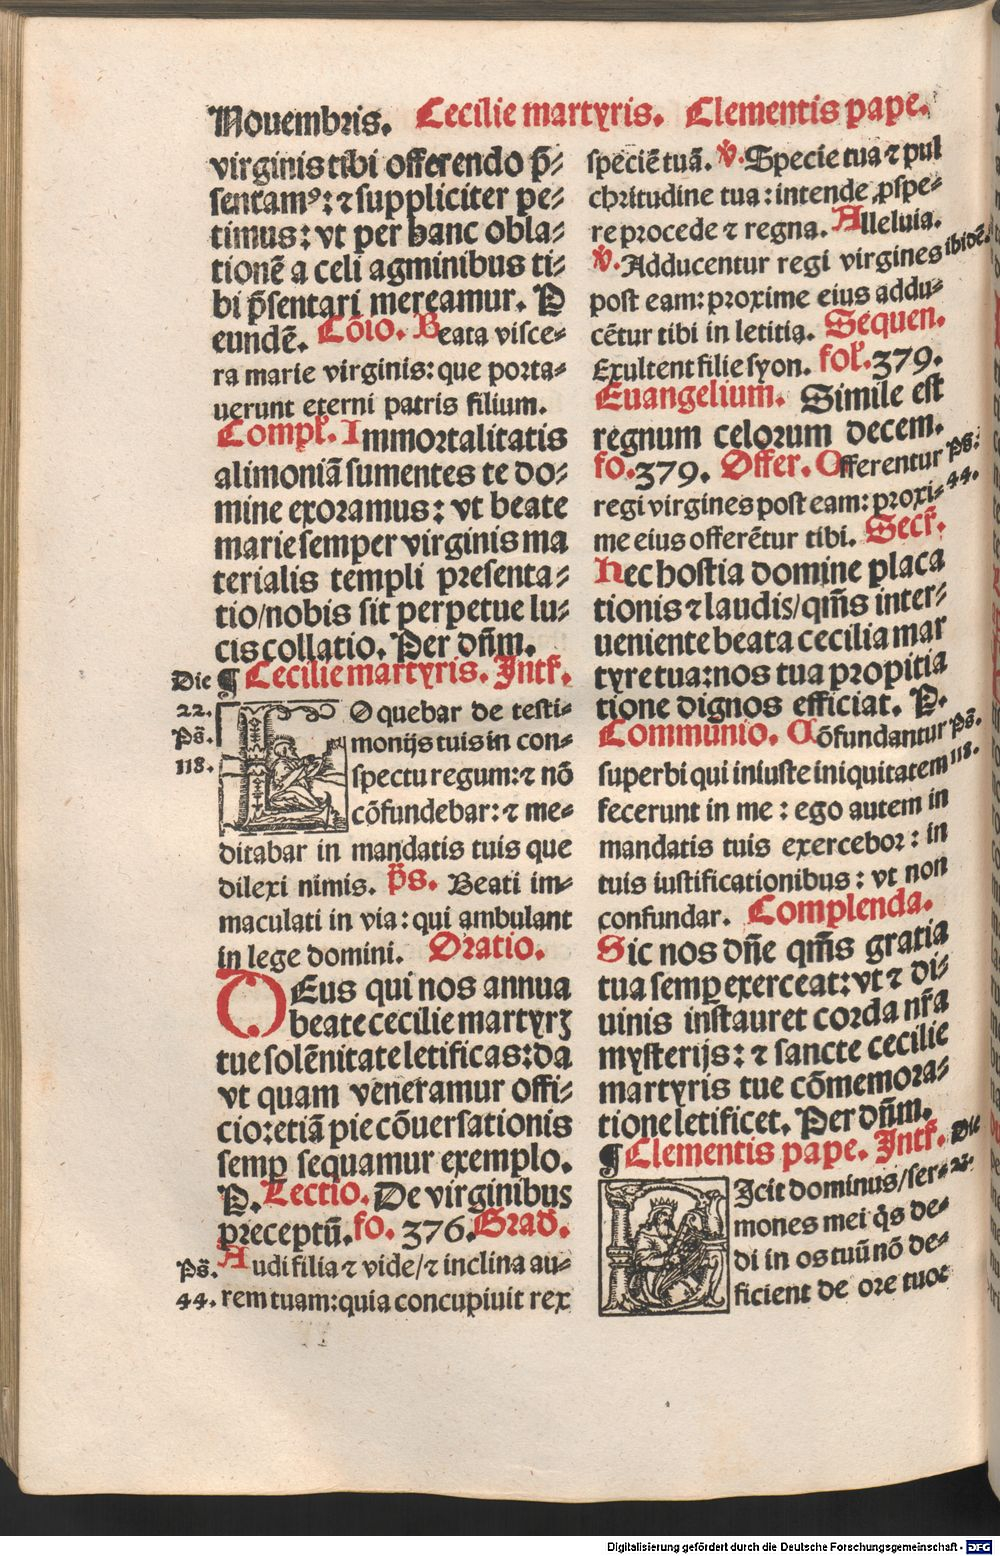 Nouembris. Cecilie martyris. Clementis pape.
virginis tibi offerendo p̄⸗
sentamꝰ: ⁊ suppliciter pe⸗
timus: vt per hanc obla⸗
tionē a celi agminibus ti⸗
bi p̄sentari mereamur. P
eundē. Cōio. Beata visce⸗
ra marie virginis: que porta⸗
uerunt eterni patris filium.
Compl̄. Immortalitatis
alimoniā sumentes te do⸗
mine exoramus: vt beate
marie semper virginis ma
terialis templi presenta⸗
tio/nobis sit perpetue lu⸗
cis collatio. Per dn̄m.
Die ¶ Cecilie martyris. Intr̄.
22. LOquebar de testi⸗
Ps̄. monijs tuis in con⸗
118. spectu regum: ⁊ nō
cōfundebar: ⁊ me⸗
ditabar in mandatis tuis que
dilexi nimis. p̄s. Beati im⸗
maculati in via: qui ambulant
in lege domini. Oratio.
DEus qui nos annua
beate cecilie martyrꝫ
tue solēnitate letificas: da
vt quam veneramur offi⸗
cio: etiā pie cōuersationis
semꝑ sequamur exemplo.
P. Lectio. De virginibus
preceptū. fo. 376. Grad̄.
Ps̄. Audi filia ⁊ vide/⁊ inclina au⸗
44. rem tuam: quia concupiuit rex
speciē tuā. ℣. Specie tua ⁊ pul
chritudine tua: intende ꝓspe⸗
re procede ⁊ regna. Alleluia.
℣. Adducentur regi virgines ibidē.
post eam: proxime eius addu⸗
cētur tibi in letitia. Sequen.
Exultent filie syon. fol̄. 379.
Euangelium. Simile est
regnum celorum decem.
fo. 379. Offer. Offerentur Ps̄.
regi virgines post eam: proxi⸗ 44.
me eius offerētur tibi. Secr̄.
Hec hostia domine placa
tionis ⁊ laudis/qm̄s inter⸗
ueniente beata cecilia mar
tyre tua: nos tua propitia
tione dignos efficiat. P.
Communio. Cōfundantur Ps̄.
superbi qui iniuste iniquitatem 118.
fecerunt in me: ego autem in
mandatis tuis exercebor: in
tuis iustificationibus: vt non
confundar. Complenda.
Sic nos dn̄e qm̄s gratia
tua semꝑ exerceat: vt ⁊ di⸗
uinis instauret corda nr̄a
mysterijs: ⁊ sancte cecilie
martyris tue cōmemora⸗
tione letificet. Per dn̄m.
¶ Clementis pape. Intr̄. Die
DIcit dominus/ser⸗ 23.
mones mei q̄s de⸗
di in os tuū nō de⸗
ficient de ore tuo:
Digitalisierung gefördert durch die Deutsche Forschungsgemeinschaft - DFG